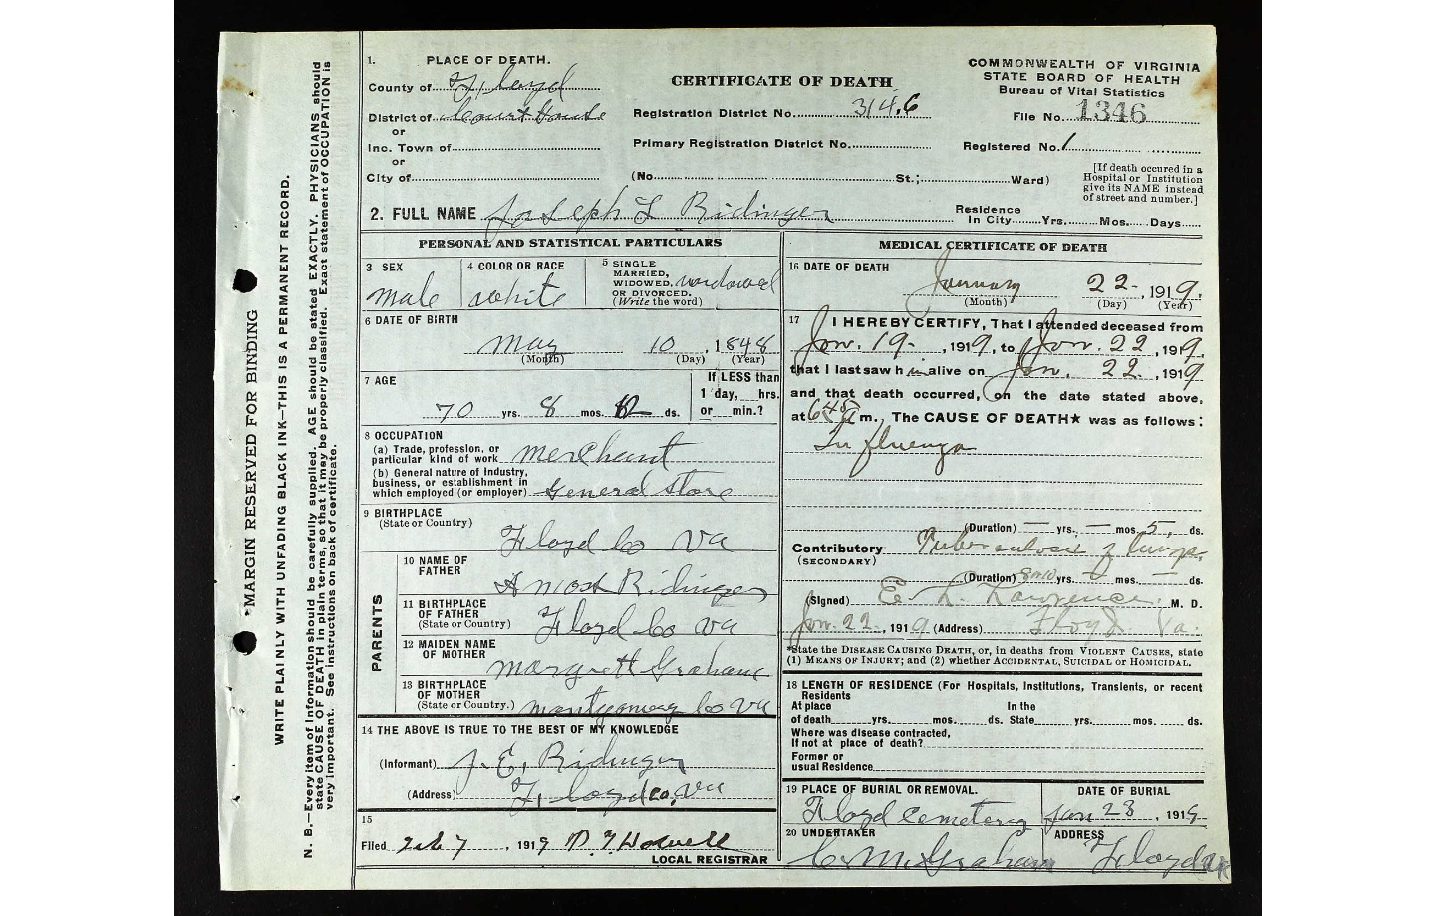 *MARGIN RESERVED FOR BINDING
WRITE PLAINLY WITH UNFADING BLACK INK—THIS IS A PERMANENT RECORD.
N. B.—Every item of information should be carefully supplied. AGE should be stated EXACTLY. PHYSICIANS should
state CAUSE OF DEATH in plain terms, so that it may be properly classified. Exact statement of OCCUPATION is
very important. See instructions on back of certificate.
1. PLACE OF DEATH.
County of Floyd
District of Court House
or
Inc. Town of
or
City of
CERTIFICATE OF DEATH
Registration District No. 3146
Primary Registration District No.
(No. St.; Ward)
COMMONWEALTH OF VIRGINIA
STATE BOARD OF HEALTH
Bureau of Vital Statistics
File No. 1346
Registered No. 1
[If death occured in a
Hospital or Institution
give its NAME instead
of street and number.]
2. FULL NAME Joseph L Ridinger
Residence
In City Yrs. Mos. Days
PERSONAL AND STATISTICAL PARTICULARS
3 SEX
male
4 COLOR OR RACE
white
5 SINGLE
MARRIED,
WIDOWED,
OR DIVORCED.
(Write the word)
widowed
6 DATE OF BIRTH
May 10, 1848
(Month) (Day) (Year)
7 AGE
70 yrs. 8 mos. 12 ds.
If LESS than
1 day, hrs.
or min.?
8 OCCUPATION
(a) Trade, profession, or
particular kind of work merchant
(b) General nature of Industry,
business, or establishment in
which employed (or employer) General Store
9 BIRTHPLACE
(State or Country)
Floyd Co Va
PARENTS
10 NAME OF
FATHER
Amos Ridinger
11 BIRTHPLACE
OF FATHER
(State or Country)
Floyd Co Va
12 MAIDEN NAME
OF MOTHER
Margrett Graham
13 BIRTHPLACE
OF MOTHER
(State or Country.)
Montgomery Co Va
14 THE ABOVE IS TRUE TO THE BEST OF MY KNOWLEDGE
(Informant) J. E. Ridinger
(Address) Floyd Co, Va
15
Filed Feb 7, 1919 LOCAL REGISTRAR
MEDICAL CERTIFICATE OF DEATH
16 DATE OF DEATH
January 22, 1919,
(Month) (Day) (Year)
17 I HEREBY CERTIFY, That I attended deceased from
Jan. 19, 1919, to Jan. 22, 1919,
that I last saw him alive on Jan. 22, 1919
and that death occurred, on the date stated above,
at 6 45 a m., The CAUSE OF DEATH★ was as follows:
Influenza
(Duration) — yrs. — mos. 5 ds.
Contributory Tuberculosis of lungs
(SECONDARY)
(Duration) yrs. mos. ds.
(Signed) E. L. Lawrence, M. D.
Jan. 22, 1919 (Address) Floyd Va.
*State the DISEASE CAUSING DEATH, or, in deaths from VIOLENT CAUSES, state
(1) MEANS OF INJURY; and (2) whether ACCIDENTAL, SUICIDAL or HOMICIDAL.
18 LENGTH OF RESIDENCE (For Hospitals, Institutions, Transients, or recent
Residents
At place In the
of death yrs. mos. ds. State yrs. mos. ds.
Where was disease contracted,
If not at place of death?
Former or
usual Residence
19 PLACE OF BURIAL OR REMOVAL.
Floyd Cemetery
DATE OF BURIAL
Jan 23, 1919
20 UNDERTAKER
C. M. Graham
ADDRESS
Floyd Va